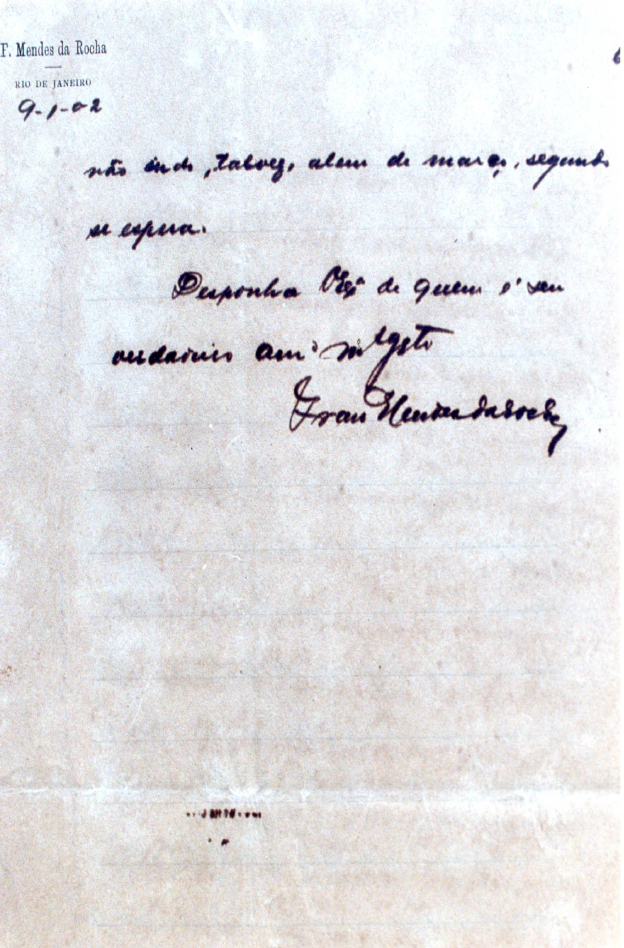 F. Mendes da Rocha
RIO DE JANEIRO
9-1-02
não indo, talvez, alem de março, segundo
se espera.
Desponha VExª de quem é seu
verdadeiro amº
Fran Mendes da Rocha